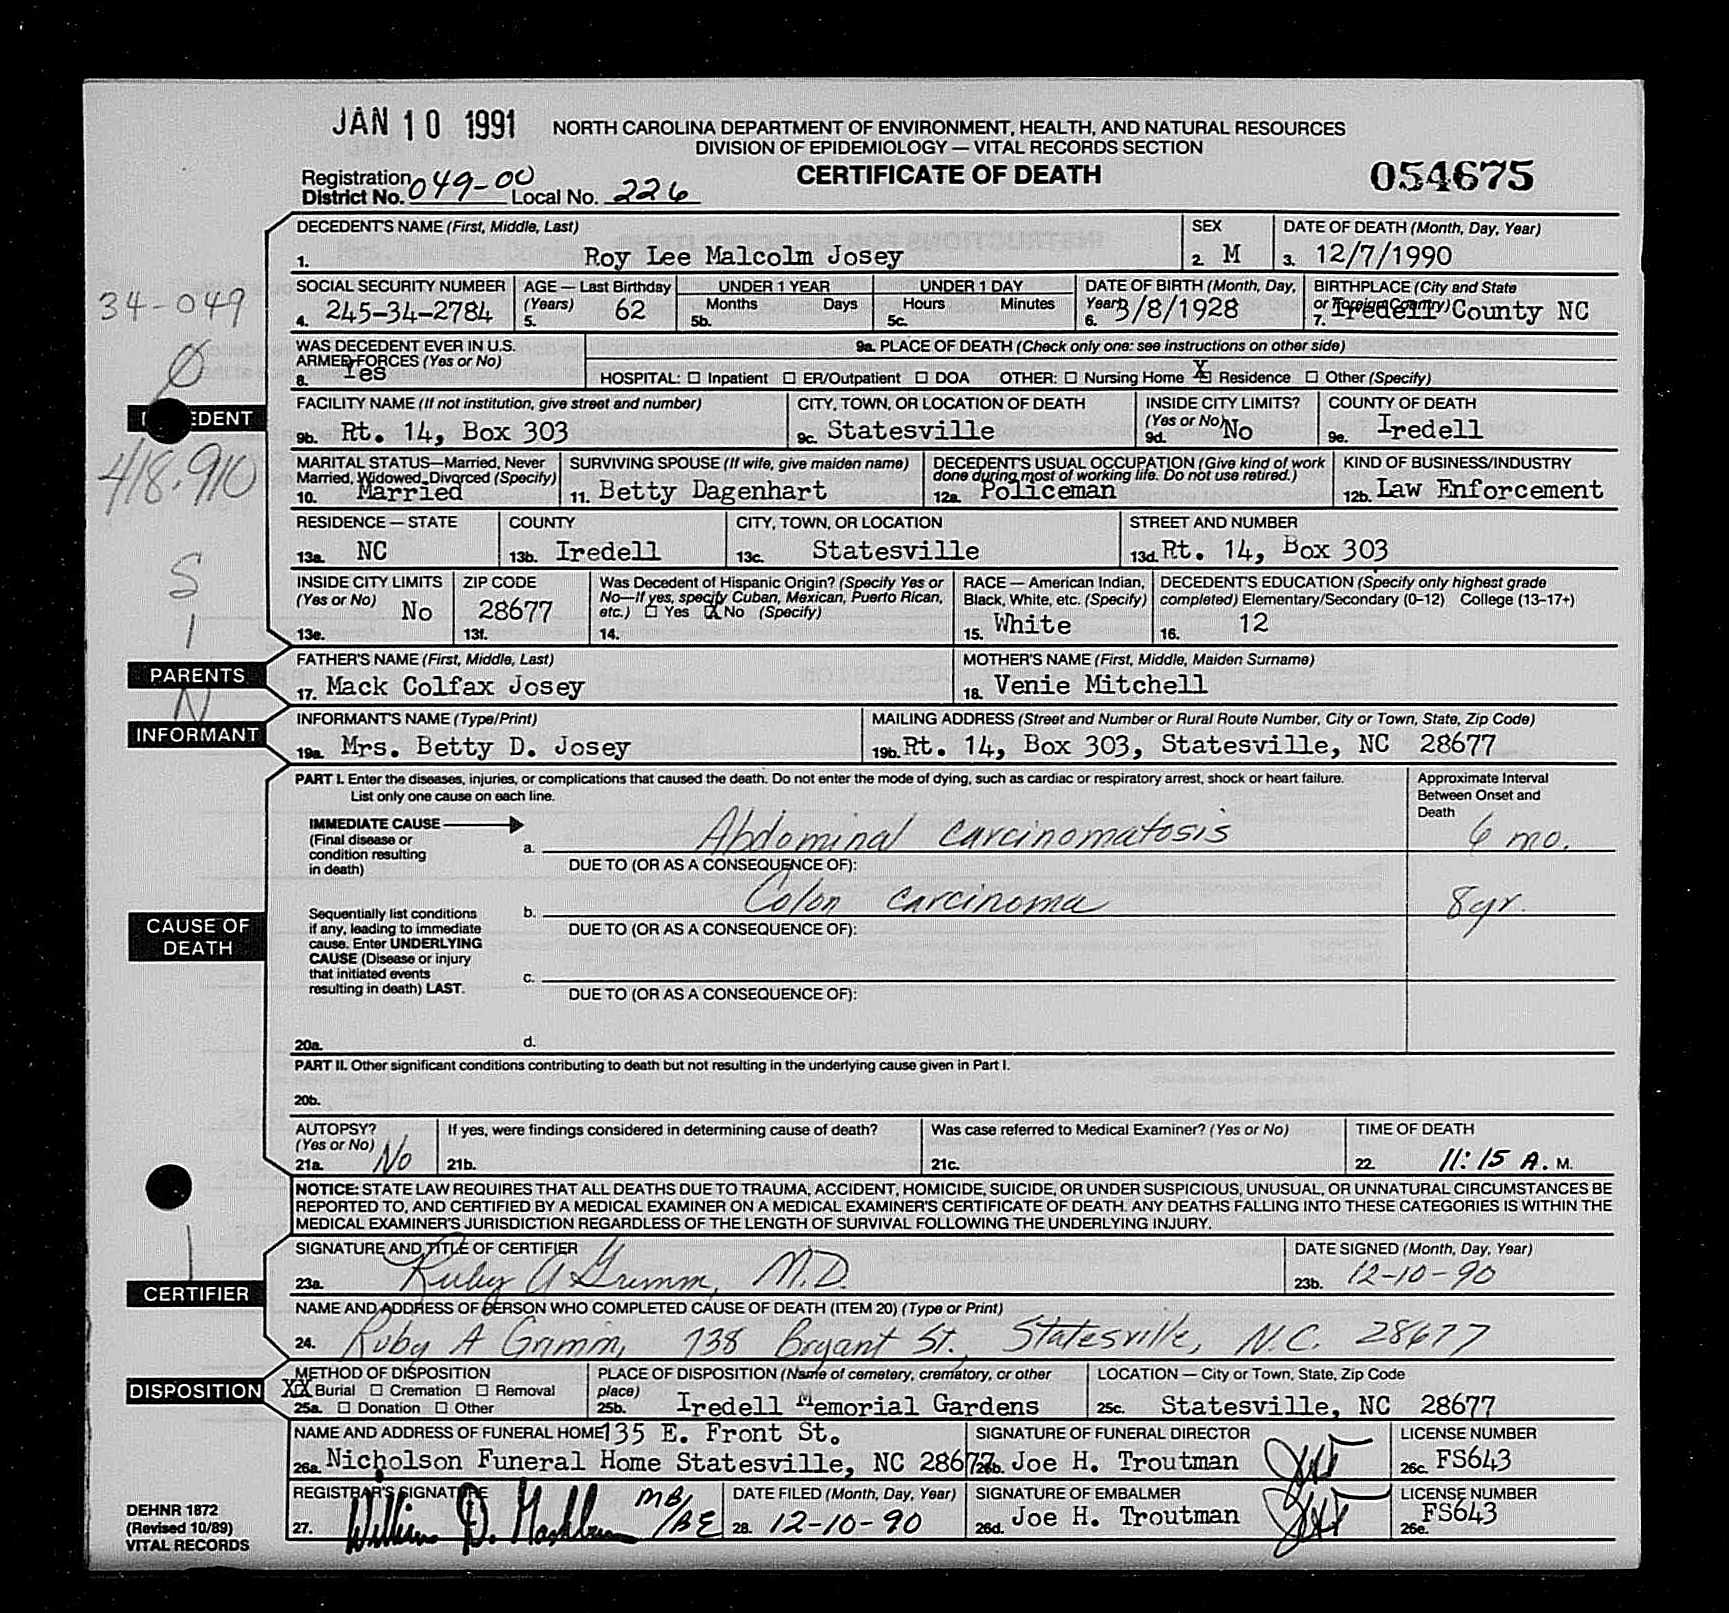 JAN 10 1991 NORTH CAROLINA DEPARTMENT OF ENVIRONMENT, HEALTH, AND NATURAL RESOURCES
DIVISION OF EPIDEMIOLOGY — VITAL RECORDS SECTION
CERTIFICATE OF DEATH
054675
Registration
District No. 049-00 Local No. 226
DECEDENT'S NAME (First, Middle, Last) SEX DATE OF DEATH (Month, Day, Year)
1. Roy Lee Malcolm Josey 2. M 3. 12/7/1990
34-049
SOCIAL SECURITY NUMBER AGE — Last Birthday UNDER 1 YEAR UNDER 1 DAY DATE OF BIRTH (Month, Day, BIRTHPLACE (City and State
(Years) Months Days Hours Minutes Year) or Foreign Country)
4. 245-34-2784 5. 62 5b. 5c. 6. 3/8/1928 7. Iredell County NC
WAS DECEDENT EVER IN U.S. 9a. PLACE OF DEATH (Check only one: see instructions on other side)
ARMED FORCES (Yes or No)
8. Yes HOSPITAL: ☐ Inpatient ☐ ER/Outpatient ☐ DOA OTHER: ☐ Nursing Home X Residence ☐ Other (Specify)
DECEDENT
FACILITY NAME (If not institution, give street and number) CITY, TOWN, OR LOCATION OF DEATH INSIDE CITY LIMITS? COUNTY OF DEATH
(Yes or No)
9b. Rt. 14, Box 303 9c. Statesville 9d. No 9e. Iredell
418.910
MARITAL STATUS—Married, Never SURVIVING SPOUSE (If wife, give maiden name) DECEDENT'S USUAL OCCUPATION (Give kind of work KIND OF BUSINESS/INDUSTRY
Married, Widowed, Divorced (Specify) done during most of working life. Do not use retired.)
10. Married 11. Betty Dagenhart 12a. Policeman 12b. Law Enforcement
RESIDENCE — STATE COUNTY CITY, TOWN, OR LOCATION STREET AND NUMBER
13a. NC 13b. Iredell 13c. Statesville 13d. Rt. 14, Box 303
S
INSIDE CITY LIMITS ZIP CODE Was Decedent of Hispanic Origin? (Specify Yes or RACE — American Indian, DECEDENT'S EDUCATION (Specify only highest grade
(Yes or No) No—If yes, specify Cuban, Mexican, Puerto Rican, Black, White, etc. (Specify) completed) Elementary/Secondary (0-12) College (13-17+)
etc.) ☐ Yes X No (Specify)
13e. No 13f. 28677 14. 15. White 16. 12
1
PARENTS
FATHER'S NAME (First, Middle, Last) MOTHER'S NAME (First, Middle, Maiden Surname)
17. Mack Colfax Josey 18. Venie Mitchell
N
INFORMANT
INFORMANT'S NAME (Type/Print) MAILING ADDRESS (Street and Number or Rural Route Number, City or Town, State, Zip Code)
19a. Mrs. Betty D. Josey 19b. Rt. 14, Box 303, Statesville, NC 28677
PART I. Enter the diseases, injuries, or complications that caused the death. Do not enter the mode of dying, such as cardiac or respiratory arrest, shock or heart failure. Approximate Interval
List only one cause on each line. Between Onset and
Death
IMMEDIATE CAUSE
(Final disease or
condition resulting
in death)
a. Abdominal carcinomatosis 6 mo.
DUE TO (OR AS A CONSEQUENCE OF):
b. Colon carcinoma 8 yr.
CAUSE OF
DEATH
Sequentially list conditions
if any, leading to immediate
cause. Enter UNDERLYING
CAUSE (Disease or injury
that initiated events
resulting in death) LAST.
DUE TO (OR AS A CONSEQUENCE OF):
c.
DUE TO (OR AS A CONSEQUENCE OF):
20a. d.
PART II. Other significant conditions contributing to death but not resulting in the underlying cause given in Part I.
20b.
AUTOPSY? If yes, were findings considered in determining cause of death? Was case referred to Medical Examiner? (Yes or No) TIME OF DEATH
(Yes or No)
21a. No 21b. 21c. 22. 11:15 A. M.
NOTICE: STATE LAW REQUIRES THAT ALL DEATHS DUE TO TRAUMA, ACCIDENT, HOMICIDE, SUICIDE, OR UNDER SUSPICIOUS, UNUSUAL, OR UNNATURAL CIRCUMSTANCES BE
REPORTED TO, AND CERTIFIED BY A MEDICAL EXAMINER ON A MEDICAL EXAMINER'S CERTIFICATE OF DEATH. ANY DEATHS FALLING INTO THESE CATEGORIES IS WITHIN THE
MEDICAL EXAMINER'S JURISDICTION REGARDLESS OF THE LENGTH OF SURVIVAL FOLLOWING THE UNDERLYING INJURY.
1
CERTIFIER
SIGNATURE AND TITLE OF CERTIFIER DATE SIGNED (Month, Day, Year)
23a. Ruby A Grimm, M.D. 23b. 12-10-90
NAME AND ADDRESS OF PERSON WHO COMPLETED CAUSE OF DEATH (ITEM 20) (Type or Print)
24. Ruby A Grimm, 738 Bryant St., Statesville, N.C. 28677
DISPOSITION
METHOD OF DISPOSITION PLACE OF DISPOSITION (Name of cemetery, crematory, or other LOCATION — City or Town, State, Zip Code
XX Burial ☐ Cremation ☐ Removal place)
25a. ☐ Donation ☐ Other 25b. Iredell Memorial Gardens 25c. Statesville, NC 28677
NAME AND ADDRESS OF FUNERAL HOME 135 E. Front St. SIGNATURE OF FUNERAL DIRECTOR LICENSE NUMBER
26a. Nicholson Funeral Home Statesville, NC 28677 26b. Joe H. Troutman JHT 26c. FS643
REGISTRAR'S SIGNATURE DATE FILED (Month, Day, Year) SIGNATURE OF EMBALMER LICENSE NUMBER
27. William D. MB/BE 28. 12-10-90 26d. Joe H. Troutman JHT 26e. FS643
DEHNR 1872
(Revised 10/89)
VITAL RECORDS